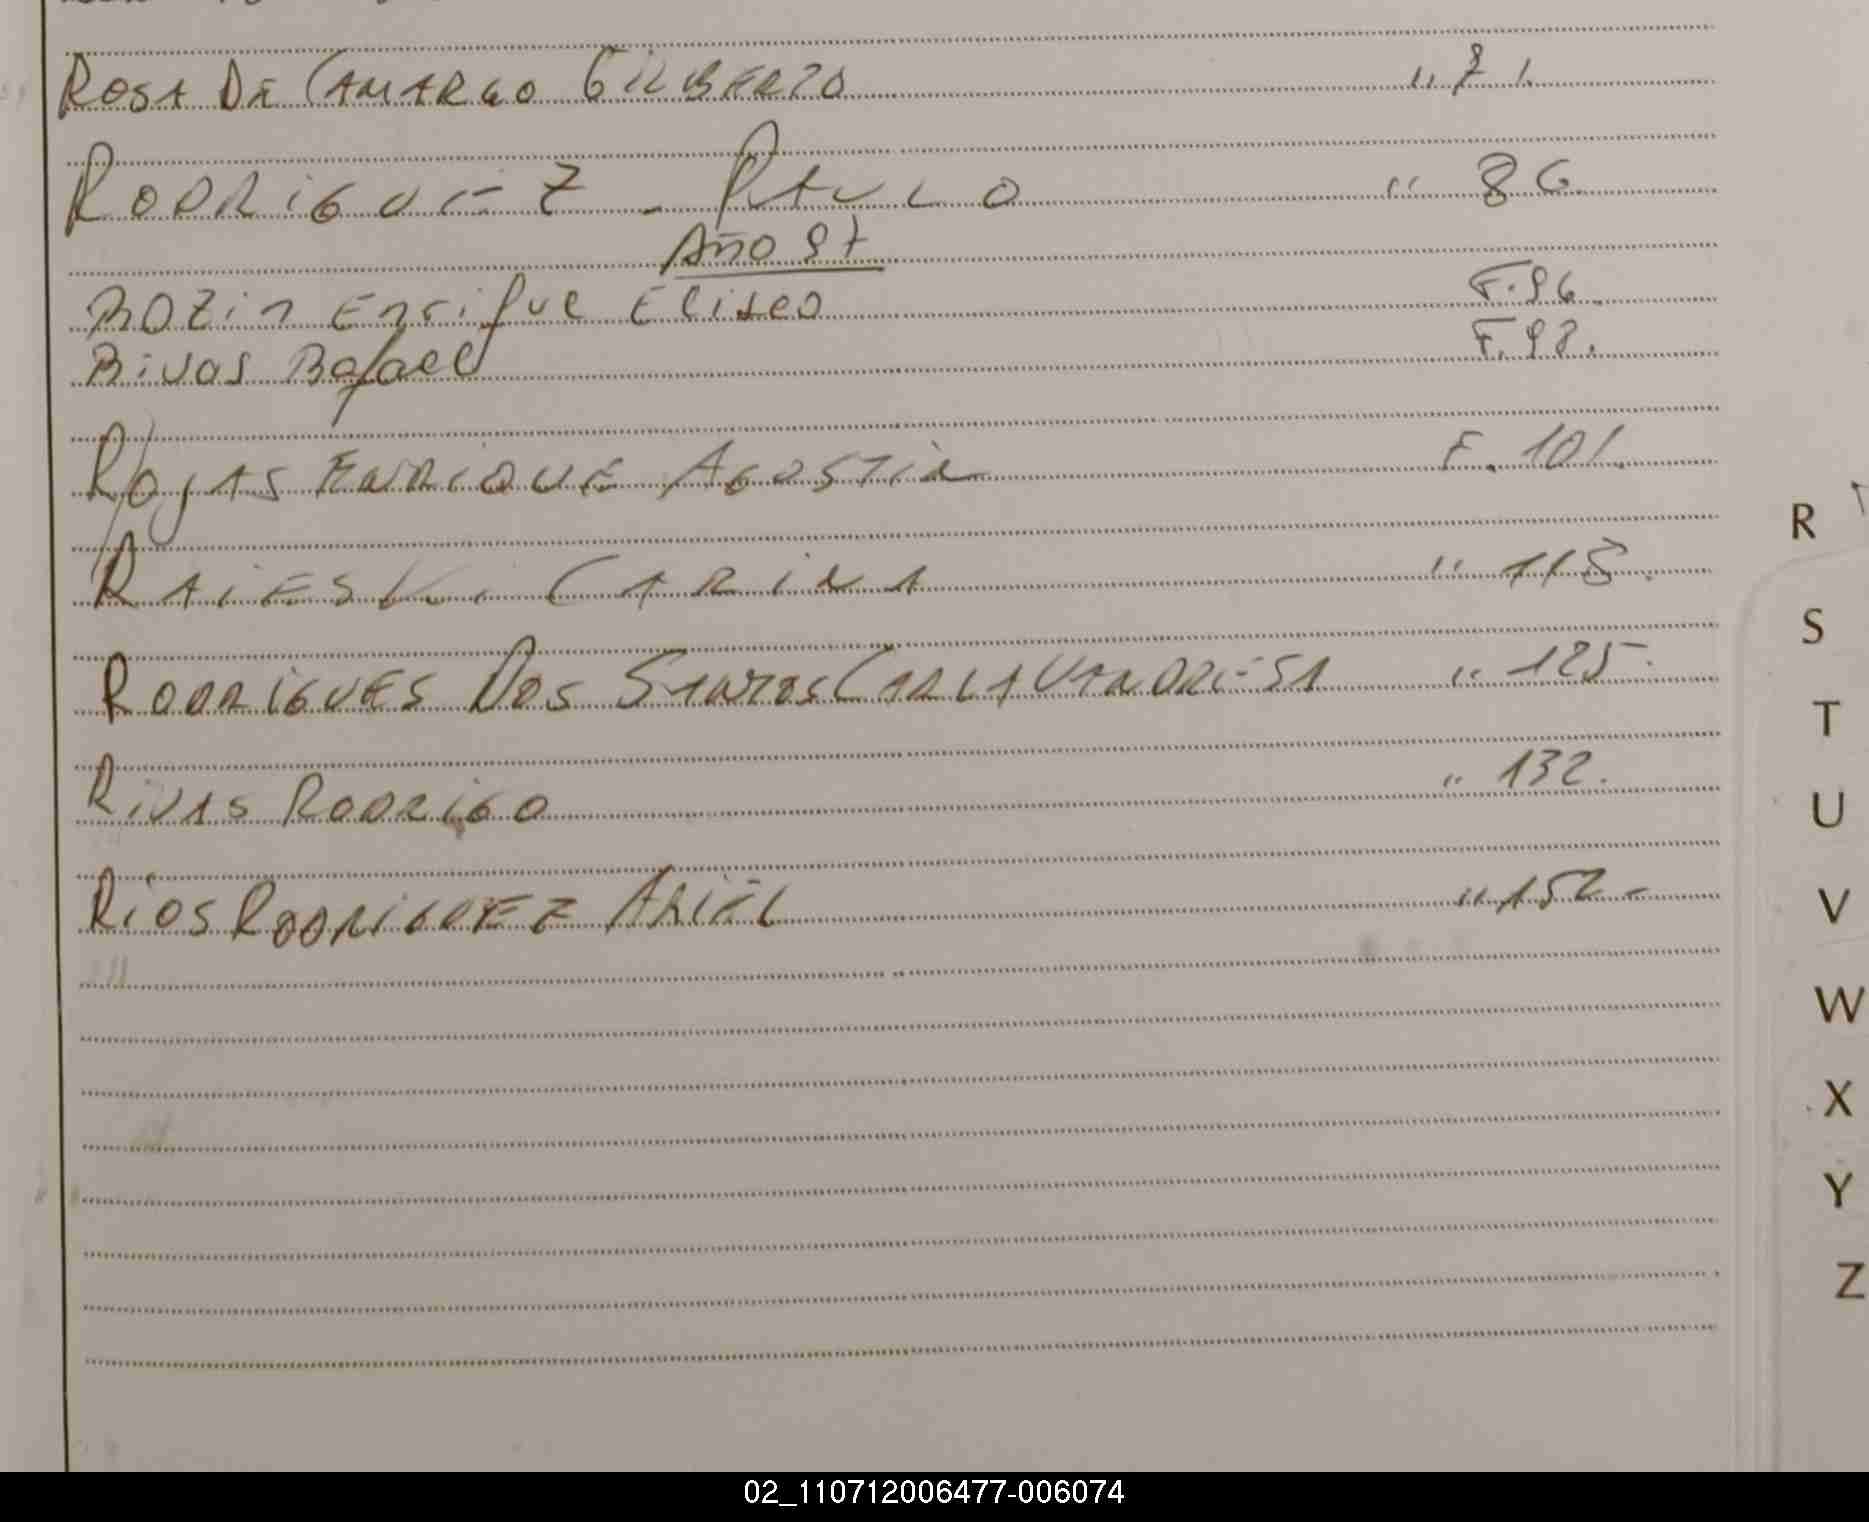 ROSA DE CAMARGO GILBERTO " 71.
RODRIGUEZ - PAULO " 86.
Año 97
ROZin Enrique Eliseo F. 96.
Rivas Rafael F. 98.
ROJAS ENRIQUE AGOSTIN F. 101.
RAIESKI CARINA " 118.
RODRIGUES DOS SANTOS CARLA VANDRESA " 125.
RIVAS RODRIGO " 132.
RIOS RODRIGUEZ ARIEL " 152-
R
S
T
U
V
W
X
Y
Z
02_110712006477-006074